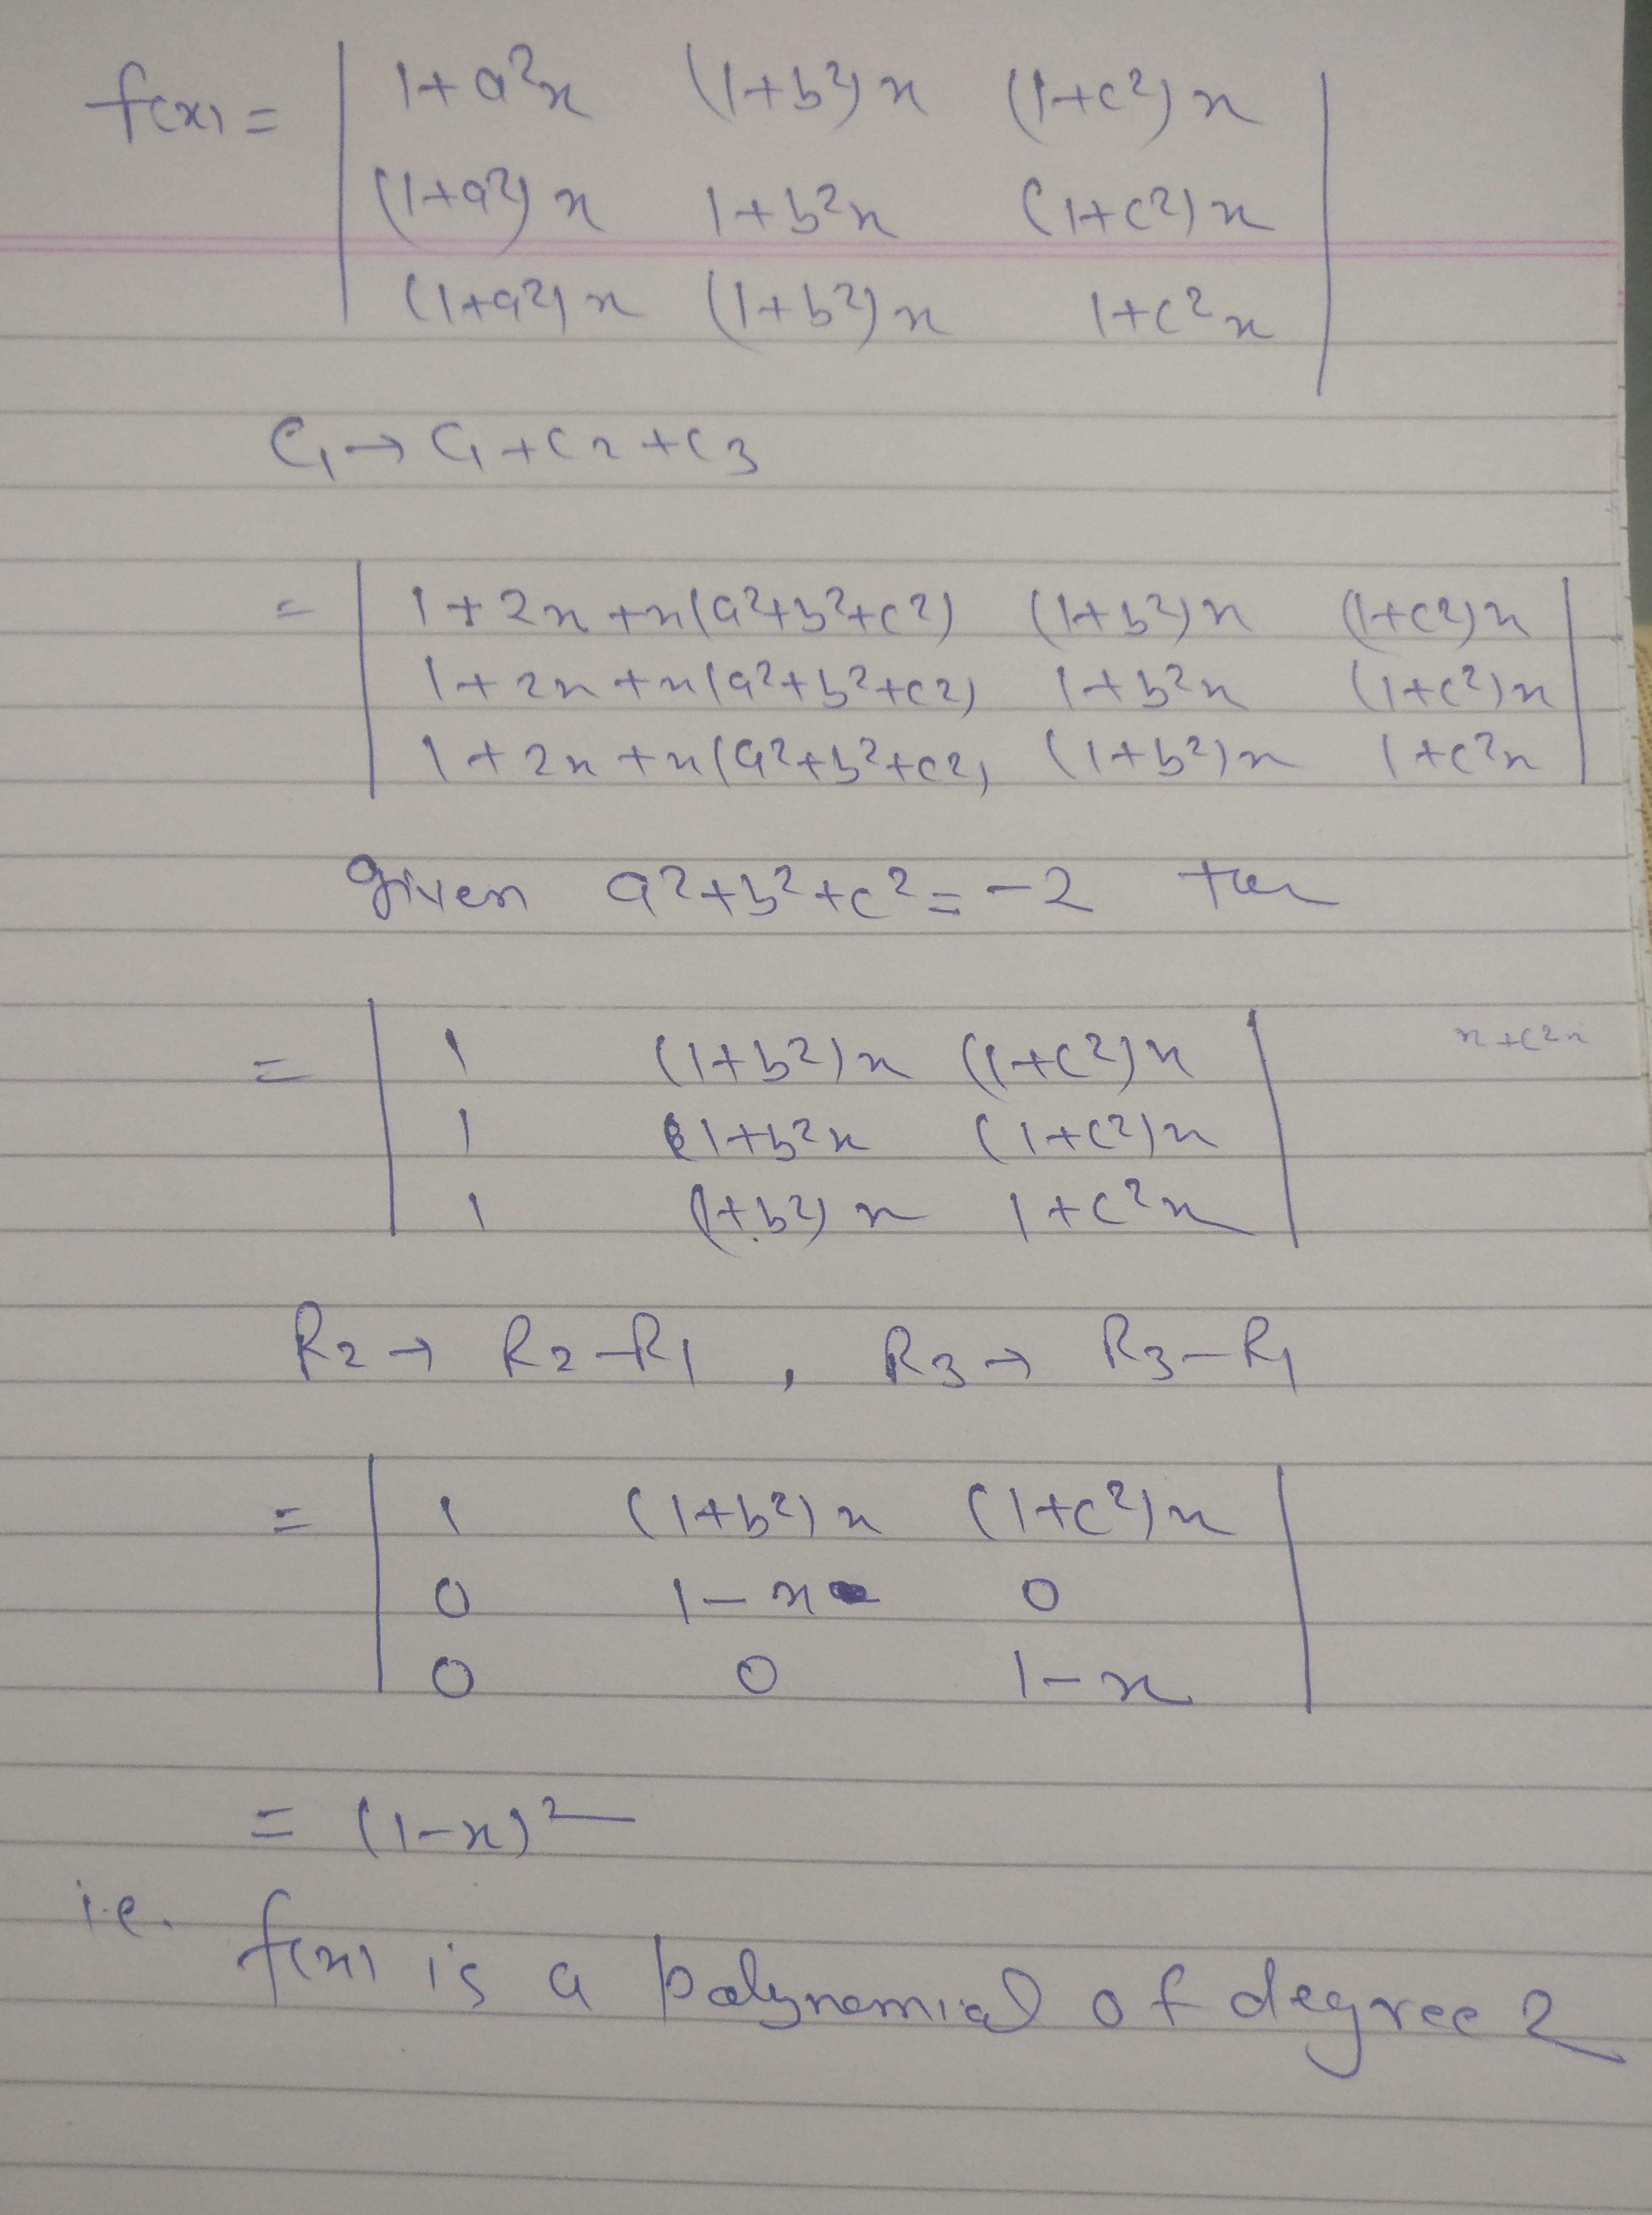 f(x) = | 1+a²x (1+b²)x (1+c²)x |
(1+a²)x 1+b²x (1+c²)x
(1+a²)x (1+b²)x 1+c²x
C₁→C₁+C₂+C₃
= | 1+2x+x(a²+b²+c²) (1+b²)x (1+c²)x |
1+2x+x(a²+b²+c²) 1+b²x (1+c²)x
1+2x+x(a²+b²+c²) (1+b²)x 1+c²x
given a²+b²+c²=-2
= | 1 (1+b²)x (1+c²)x | x+c²x
1 1+b²x (1+c²)x
1 (1+b²)x 1+c²x
R₂→ R₂-R₁ , R₃→ R₃-R₁
= | 1 (1+b²)x (1+c²)x |
0 1-x 0
0 0 1-x
= (1-x)²
i.e. f(x) is a polynomial of degree 2